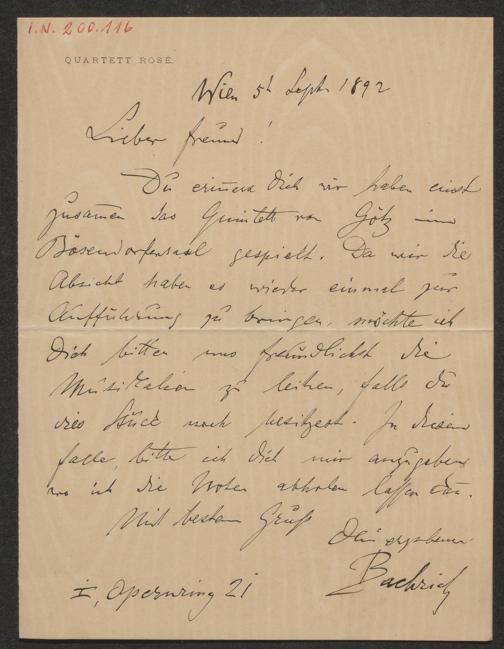 I.N. 200.116
QUARTETT ROSÉ.
Wien 5t Sept. 1892
Lieber Freund!
Du erinnerst Dich wir haben einst
zusammen das Quintett von Götz im
Bösendorfersaal gespielt. Da wir die
Absicht haben es wieder einmal zur
Aufführung zu bringen, möchte ich
Dich bitten uns freundlichst die
Musikalien zu leihen, falls du
dies Stück noch besitzest. In diesem
Falle, bitte ich Dich mir anzugeben
wo ich die Noten abholen lassen kann.
Mit bestem Gruß
Dein ergebener
Bachrich
I, Opernring 21